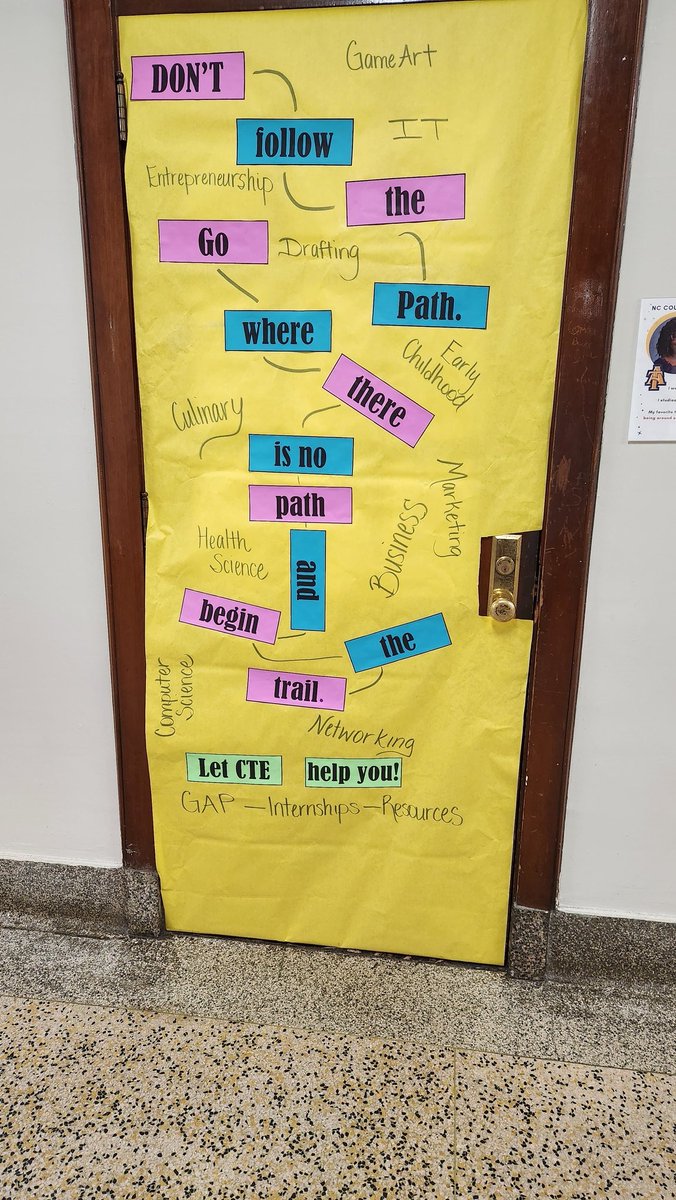 Game Art
DON'T
follow
IT
Entrepreneurship
the
Go
Drafting
Path.
where
Early
Childhood
there
Culinary
is no
path
Marketing
Business
Health
Science
and
begin
the
trail.
Computer
Science
Networking
Let CTE
help you!
GAP – Internships – Resources
NC COU
I studied
My favorite
being around